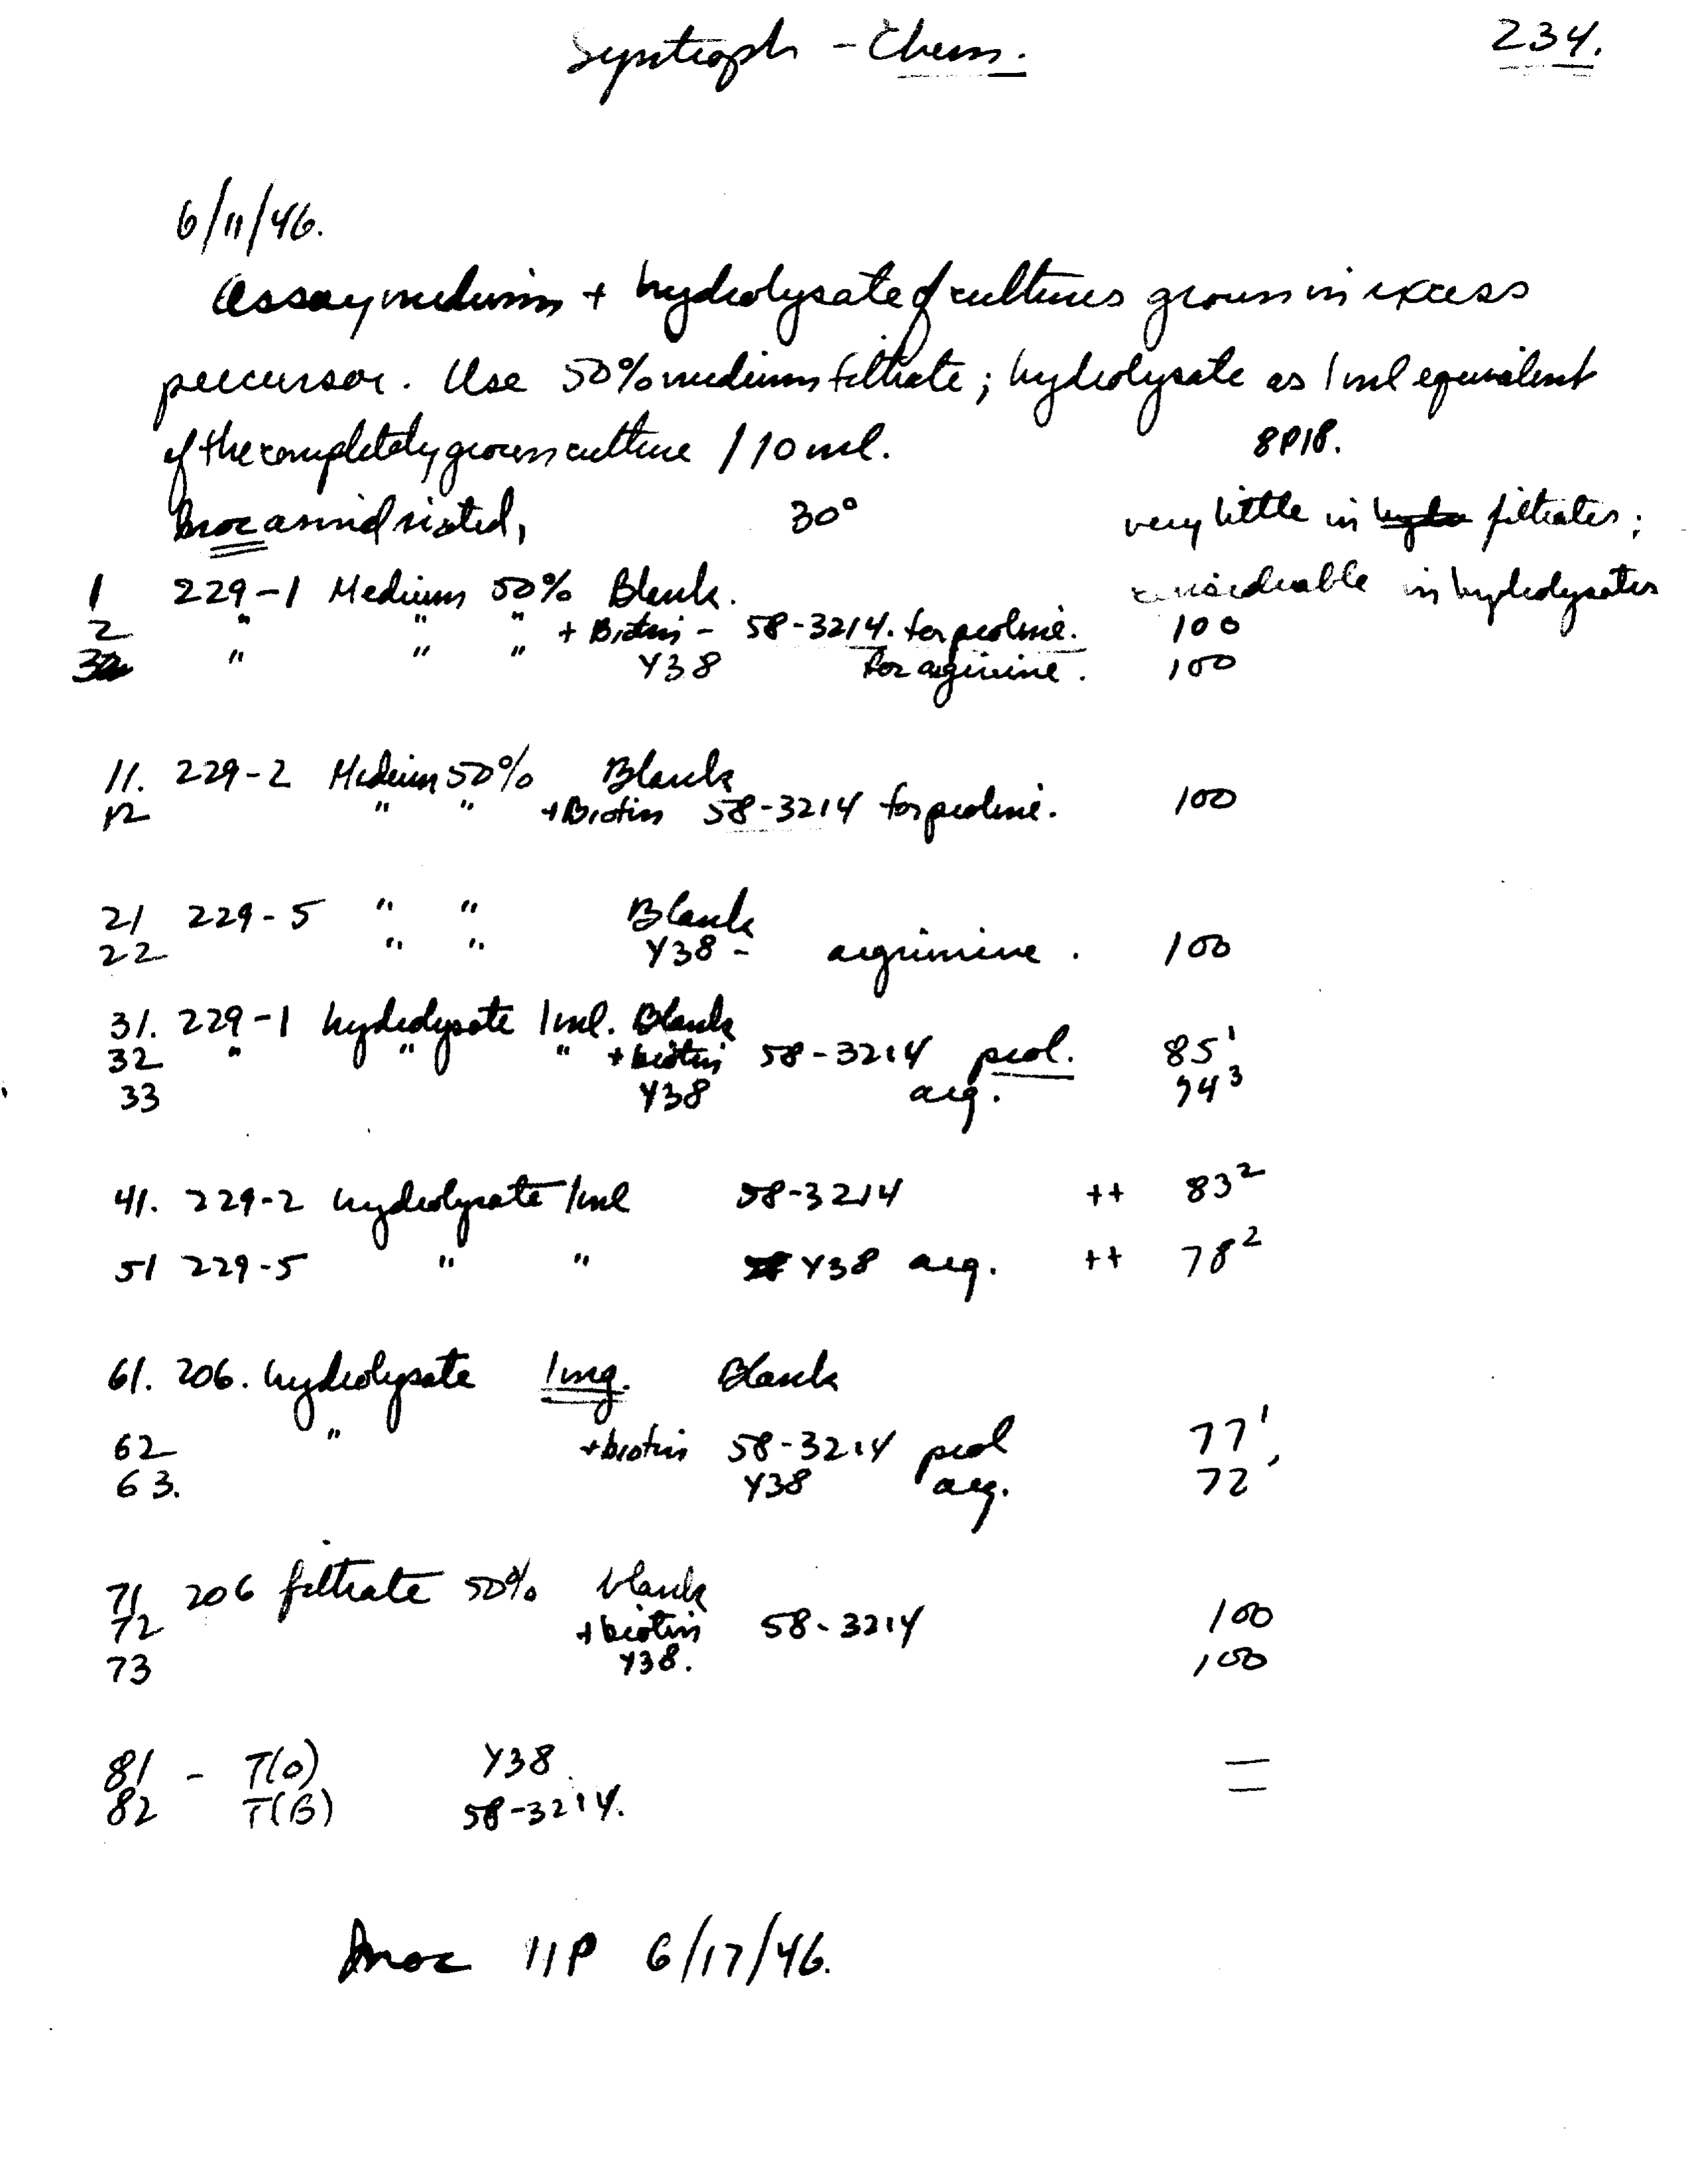 Syntroph - Chem. 234.
6/11/46.
Assay medium + hydrolysate of cultures grown in excess
precursor. Use 50% medium filtrate; hydrolysate as 1 ml equivalent
of the completely grown culture / 10 ml. 8P18.
Inoc as indicated, 30° very little in hydro filtrates;
1 229-1 Medium 50% Blank. considerable in hydrolysates
2 " " " + Biotin - 58-3214. for proline. 100
3 " " " Y38 for arginine. 100
11. 229-2 Medium 50% Blank
12 " " + Biotin 58-3214 for proline. 100
21 229-5 " " Blank
22 " " Y38 - arginine. 100
31. 229-1 hydrolysate 1 ml. Blank
32 " " " + biotin 58-3214 prol. 85¹
33 Y38 arg. 94³
41. 229-2 hydrolysate 1 ml 58-3214 ++ 83²
51 229-5 " " Y38 arg. ++ 78²
61. 206. hydrolysate 1 mg. Blank
62 " + biotin 58-3214 prol 77¹
63. Y38 arg. 72'
71 206 filtrate 50% blank
72 + biotin 58-3214 100
73 Y38. 100
81 - T(0) Y38. —
82 T(B) 58-3214. —
Inoc 11P 6/17/46.